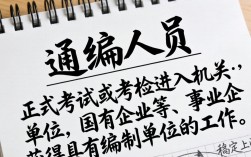 通编人员
正式考试或考检进入机关.,
单位，国有企业等、事业企
获得具有编制单位的工作。
稿定